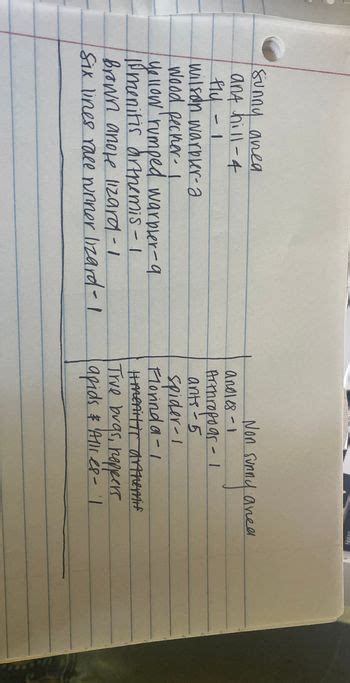 Sunny area
ant hill - 4
fly - 1
wilson warbler - 2
wood pecker - 1
yellow rumped warbler - 9
menitis arthemis - 1
Brown anole lizard - 1
Six lines race runner lizard - 1
Non sunny area
anoles - 1
Arthropoar - 1
ants - 5
spider - 1
Florinda - 1
True bugs, hoppers
apids & Allies - 1